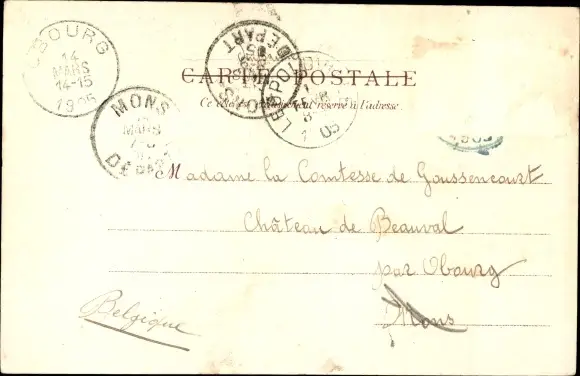 OBOURG
14
MARS
14-15
1905
MONS
MARS
DÉPART
DÉPART
LEOPOL
1 05
CARTE POSTALE
Ce côté est exclusivement réservé à l'adresse
Madame la Comtesse de Goussencourt
Château de Beauval
par Obourg
Mons
Belgique